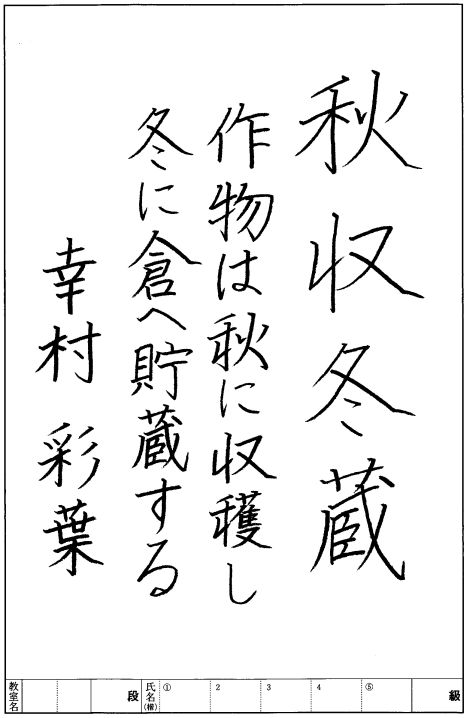 秋収冬蔵
作物は秋に収穫し
冬に倉へ貯蔵する
幸村 彩葉
級
⑤
4
3
2
①
氏名(権)
段
教室名